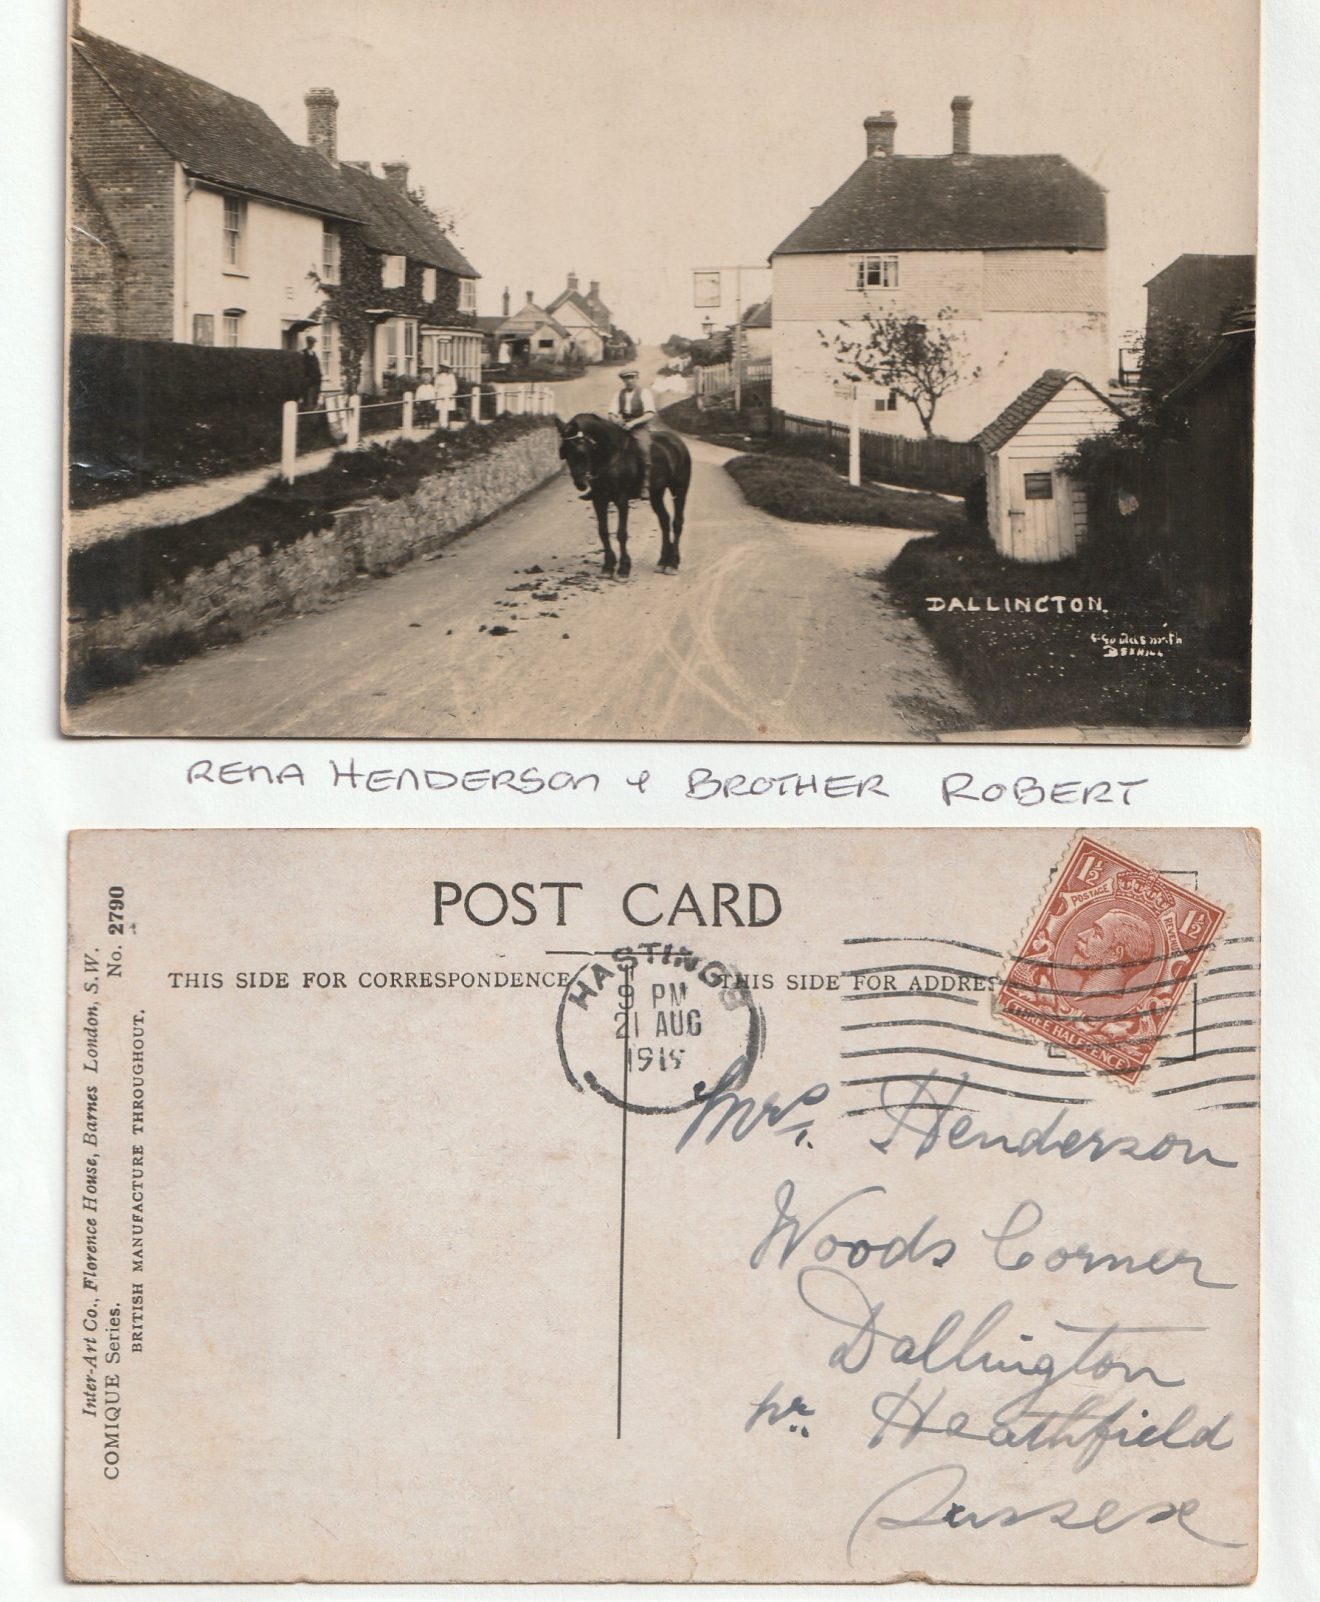 DALLINGTON.
BEXHILL
RENA HENDERSON & BROTHER ROBERT
POST CARD
THIS SIDE FOR CORRESPONDENCE
THIS SIDE FOR ADDRES
HASTINGS
9 PM
21 AUG
POSTAGE
REVENUE
1½
1½
THREE HALFPENCE
Mrs. Henderson
Woods Corner
Dallington
nr. Heathfield
Sussex
Inter-Art Co., Florence House, Barnes London, S.W.
COMIQUE Series. No. 2790
BRITISH MANUFACTURE THROUGHOUT.